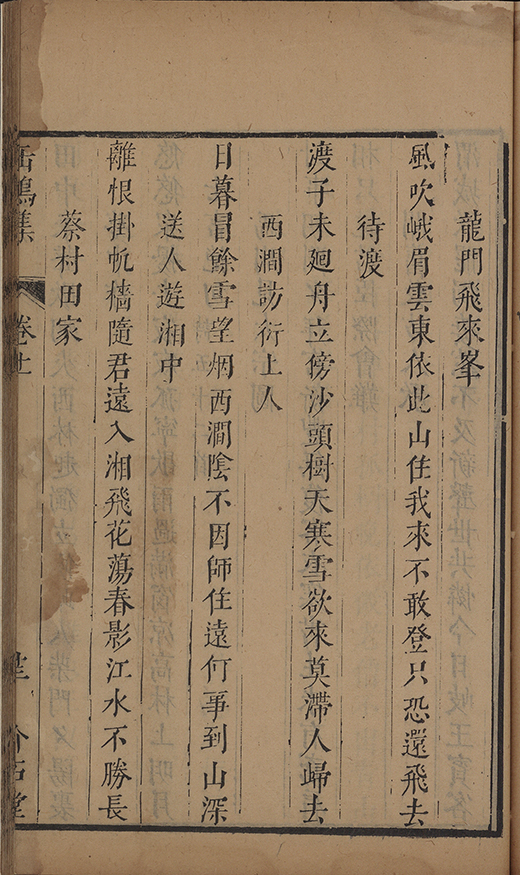 龍門飛來峯
風吹峨眉雲東依此山住我來不敢登只恐還飛去
待渡
渡子未廻舟立傍沙頭樹天寒雪欲來莫滯人歸去
西澗訪衍上人
日暮冒餘雪望烟西澗陰不因師住遠何事到山深
送人遊湘中
離恨掛帆檣隨君遠入湘飛花蕩春影江水不勝長
蔡村田家
缶鳴集 卷十 介石堂